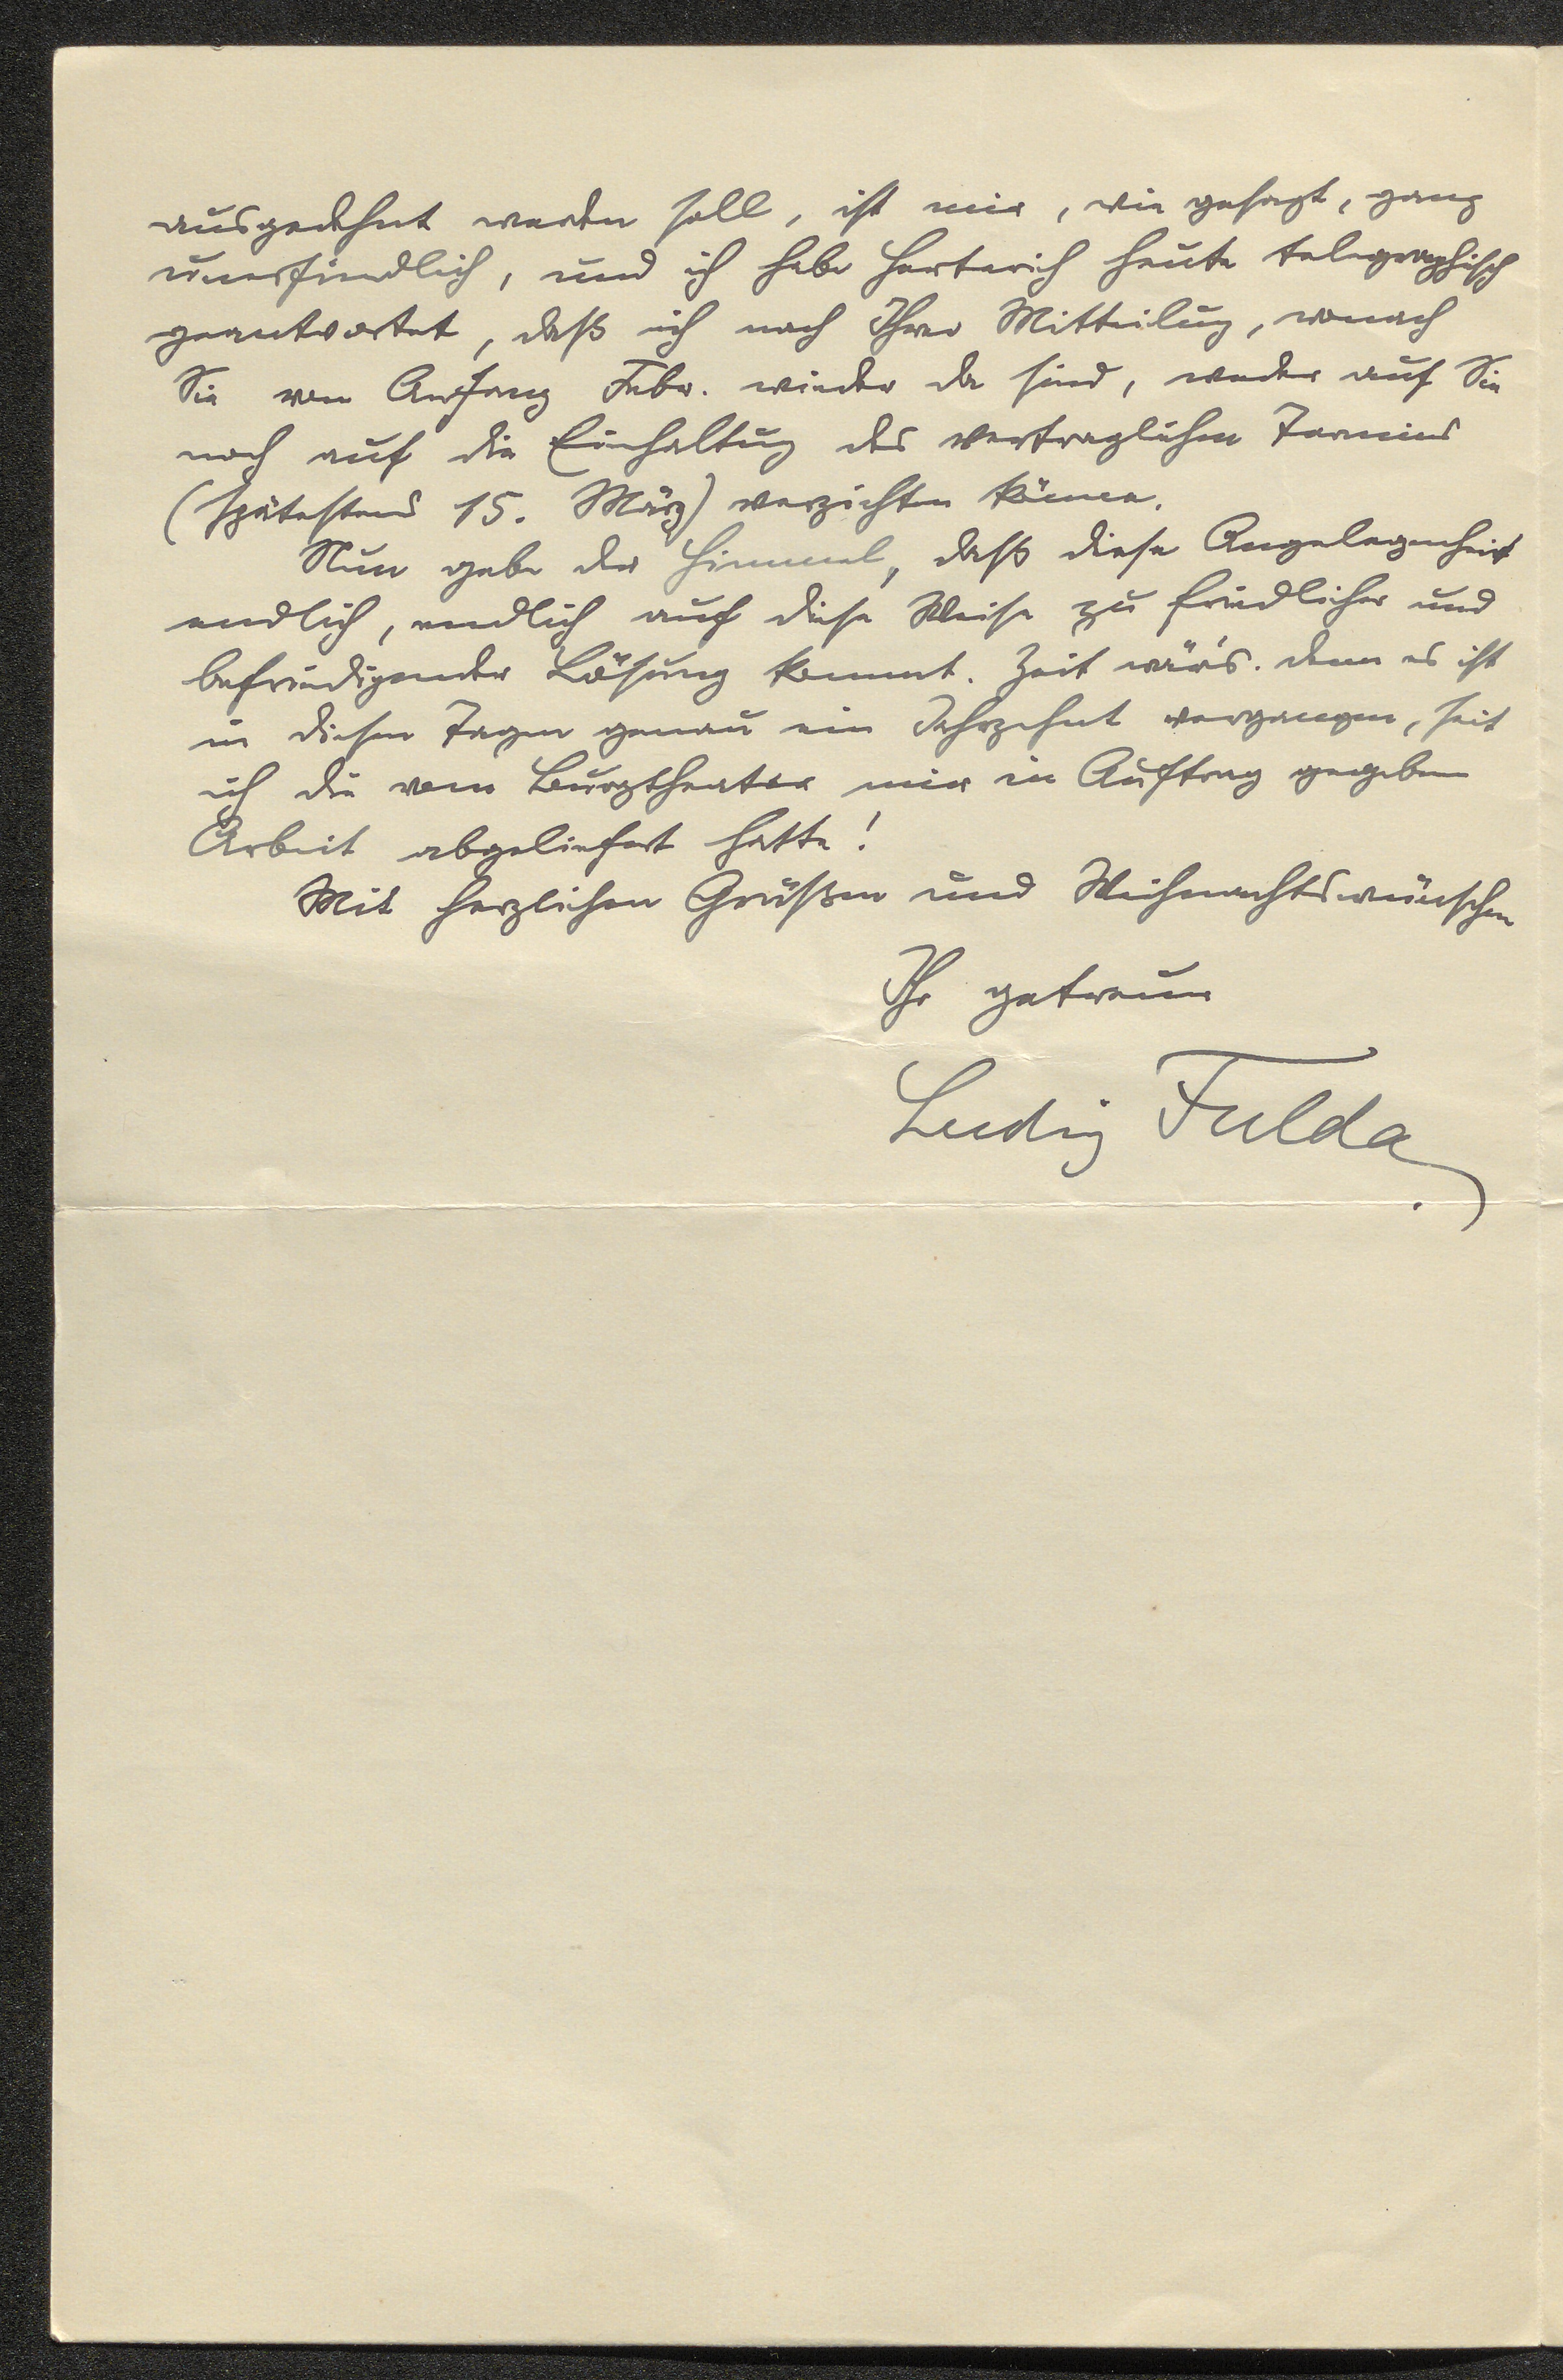 ausgedehnt werden soll, ist mir, wie gesagt, ganz
unerfindlich, und ich habe Herterich heute telegraphisch
geantwortet, daß ich nach Ihrer Mitteilung, wonach
Sie von Anfang Febr. wieder da sind, weder auf Sie
noch auf die Einhaltung des vertraglichen Termins
(spätestens 15. März) verzichten könne.
Nun gebe der Himmel, daß diese Angelegenheit
endlich, endlich auf diese Weise zu friedlicher und
befriedigender Lösung kommt. Zeit wär's. Denn es ist
in diesen Tagen genau ein Jahrzehnt vergangen, seit
ich die vom Burgtheater mir in Auftrag gegeben
Arbeit abgeliefert hatte!
Mit herzlichen Grüßen und Weihnachtswünschen
Ihr getreuer
Ludwig Fulda.